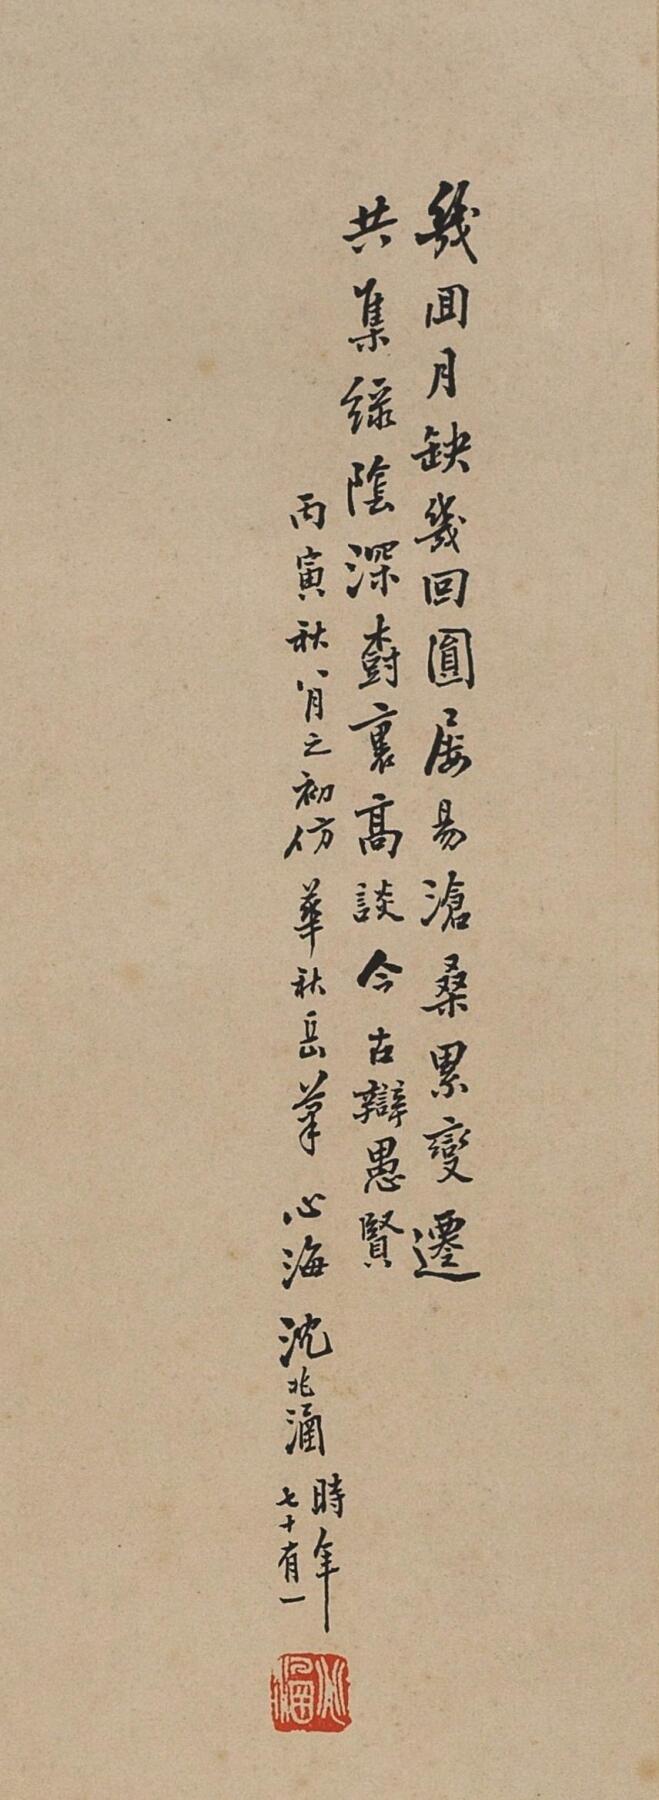 幾回月缺幾回圓屢易滄桑累變遷
共集綠陰深樹裏高談今古辯愚賢
丙寅秋八月之初仿華秋岳筆心海沈兆涵
時年
七十有一
心海